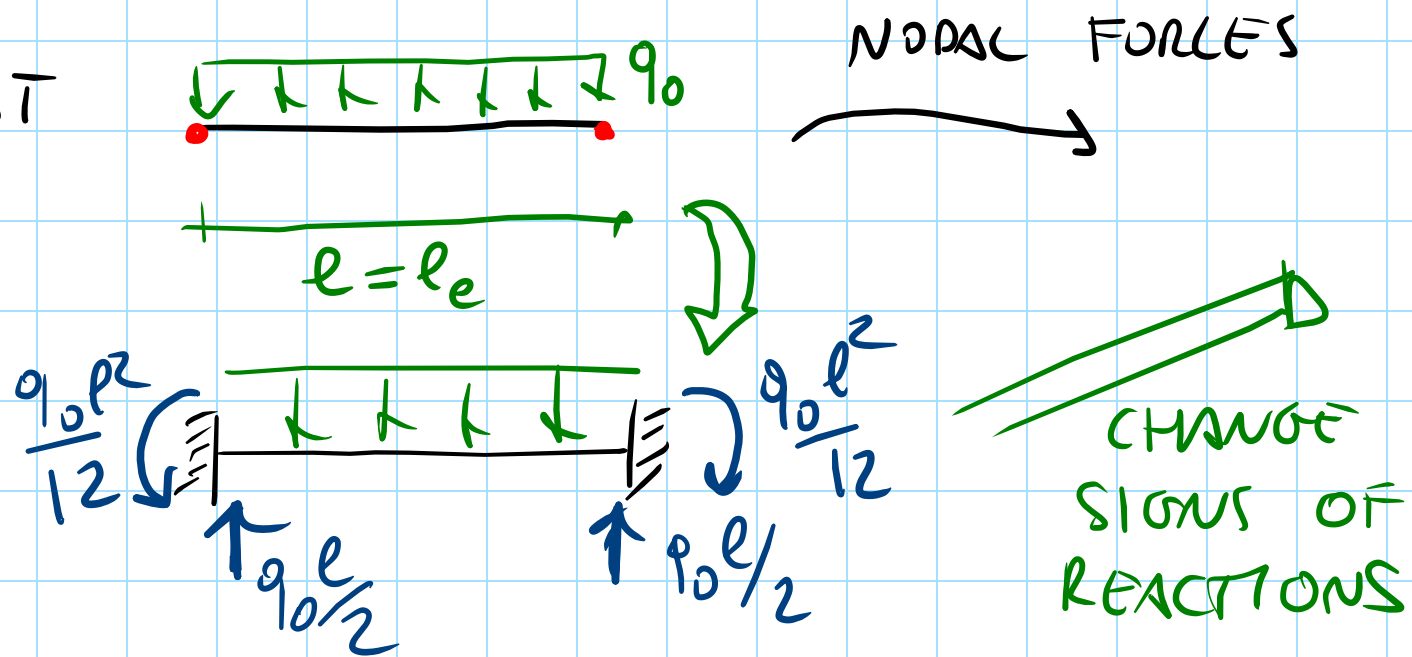 NODAL FORCES
T
q₀
l = lₑ
q₀l²/12
q₀l²/12
q₀l/2
q₀l/2
CHANGE
SIGNS OF
REACTIONS